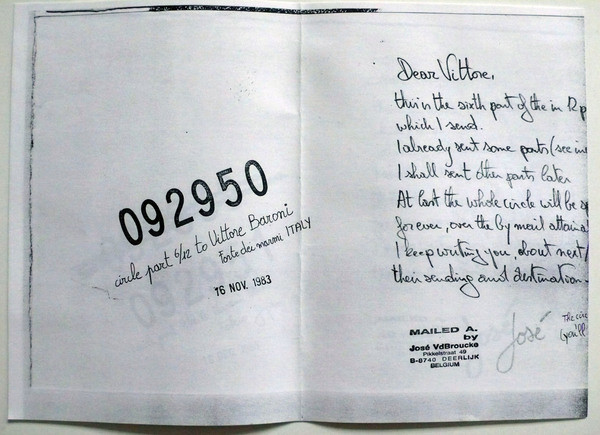 092950
circle part 6/12 to Vittore Baroni
Forte dei marmi ITALY
16 NOV. 1983
Dear Vittore,
this is the sixth part of the in 12 p
which I send.
I already sent some parts (see in
I shall sent other parts later
At last the whole circle will be sp
forever, over the by mail attaina
I keep writing you, about next
their sending and destination.
MAILED A.
by
José VdBroucke
Pikkelstraat 49
B-8740 DEERLIJK
BELGIUM
José
The circ
(you'll